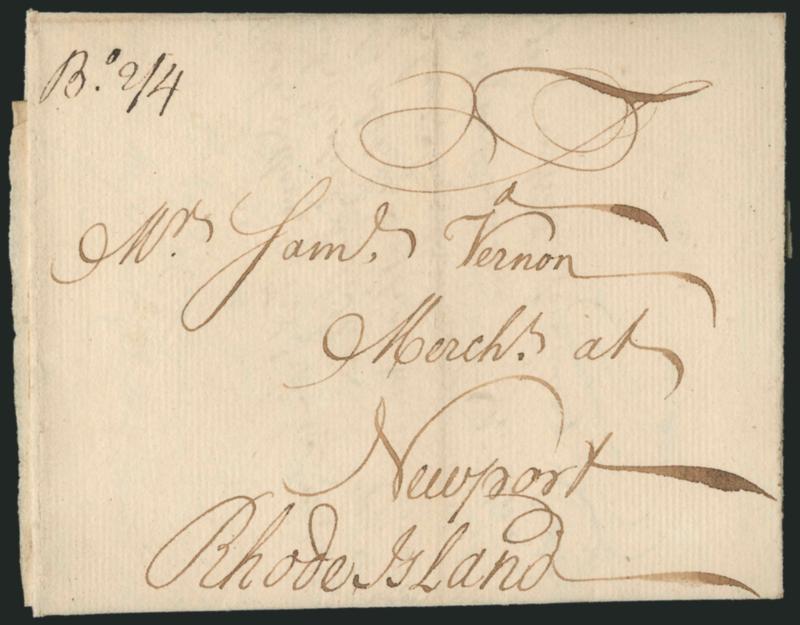 Bº 2/4
To
Mr. Saml. Vernon
Mercht. at
Newport
Rhode Island